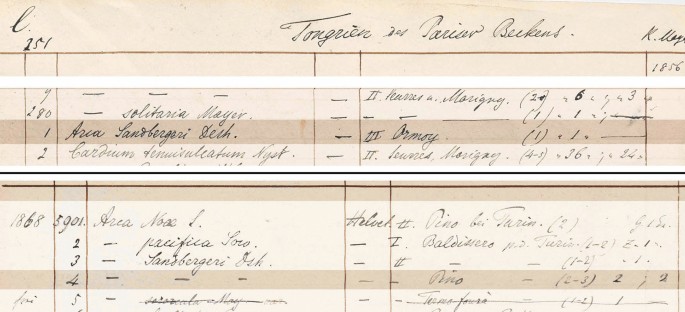 C. 251 Tongrien des Pariser Beckens. K. May
1856
9 — — — II. Jeurres u. Morigny. (2) " 6 " ; " 3
280 — solitaria Mayer. — — — (1) " 1 " ;
1 Arca Sandbergeri Desh. — III. Ormoy. (1) " 1 " —
2 Cardium tenuisulcatum Nyst. — II. Jeurres, Morigny. (4-3) " 36 " ; " 24
1868 3901. Arca Noæ L. Helvet. II. Pino bei Turin. (2)
2 — pacifica Sow. — I. Baldissero b. Turin. (1-2) 2 - 1
3 — Sandbergeri Dsh. — II — — (1-2) " 1
4 — — — — — Pino — (2-3) 2 ; 2
5 — — May — — (1-2) 1